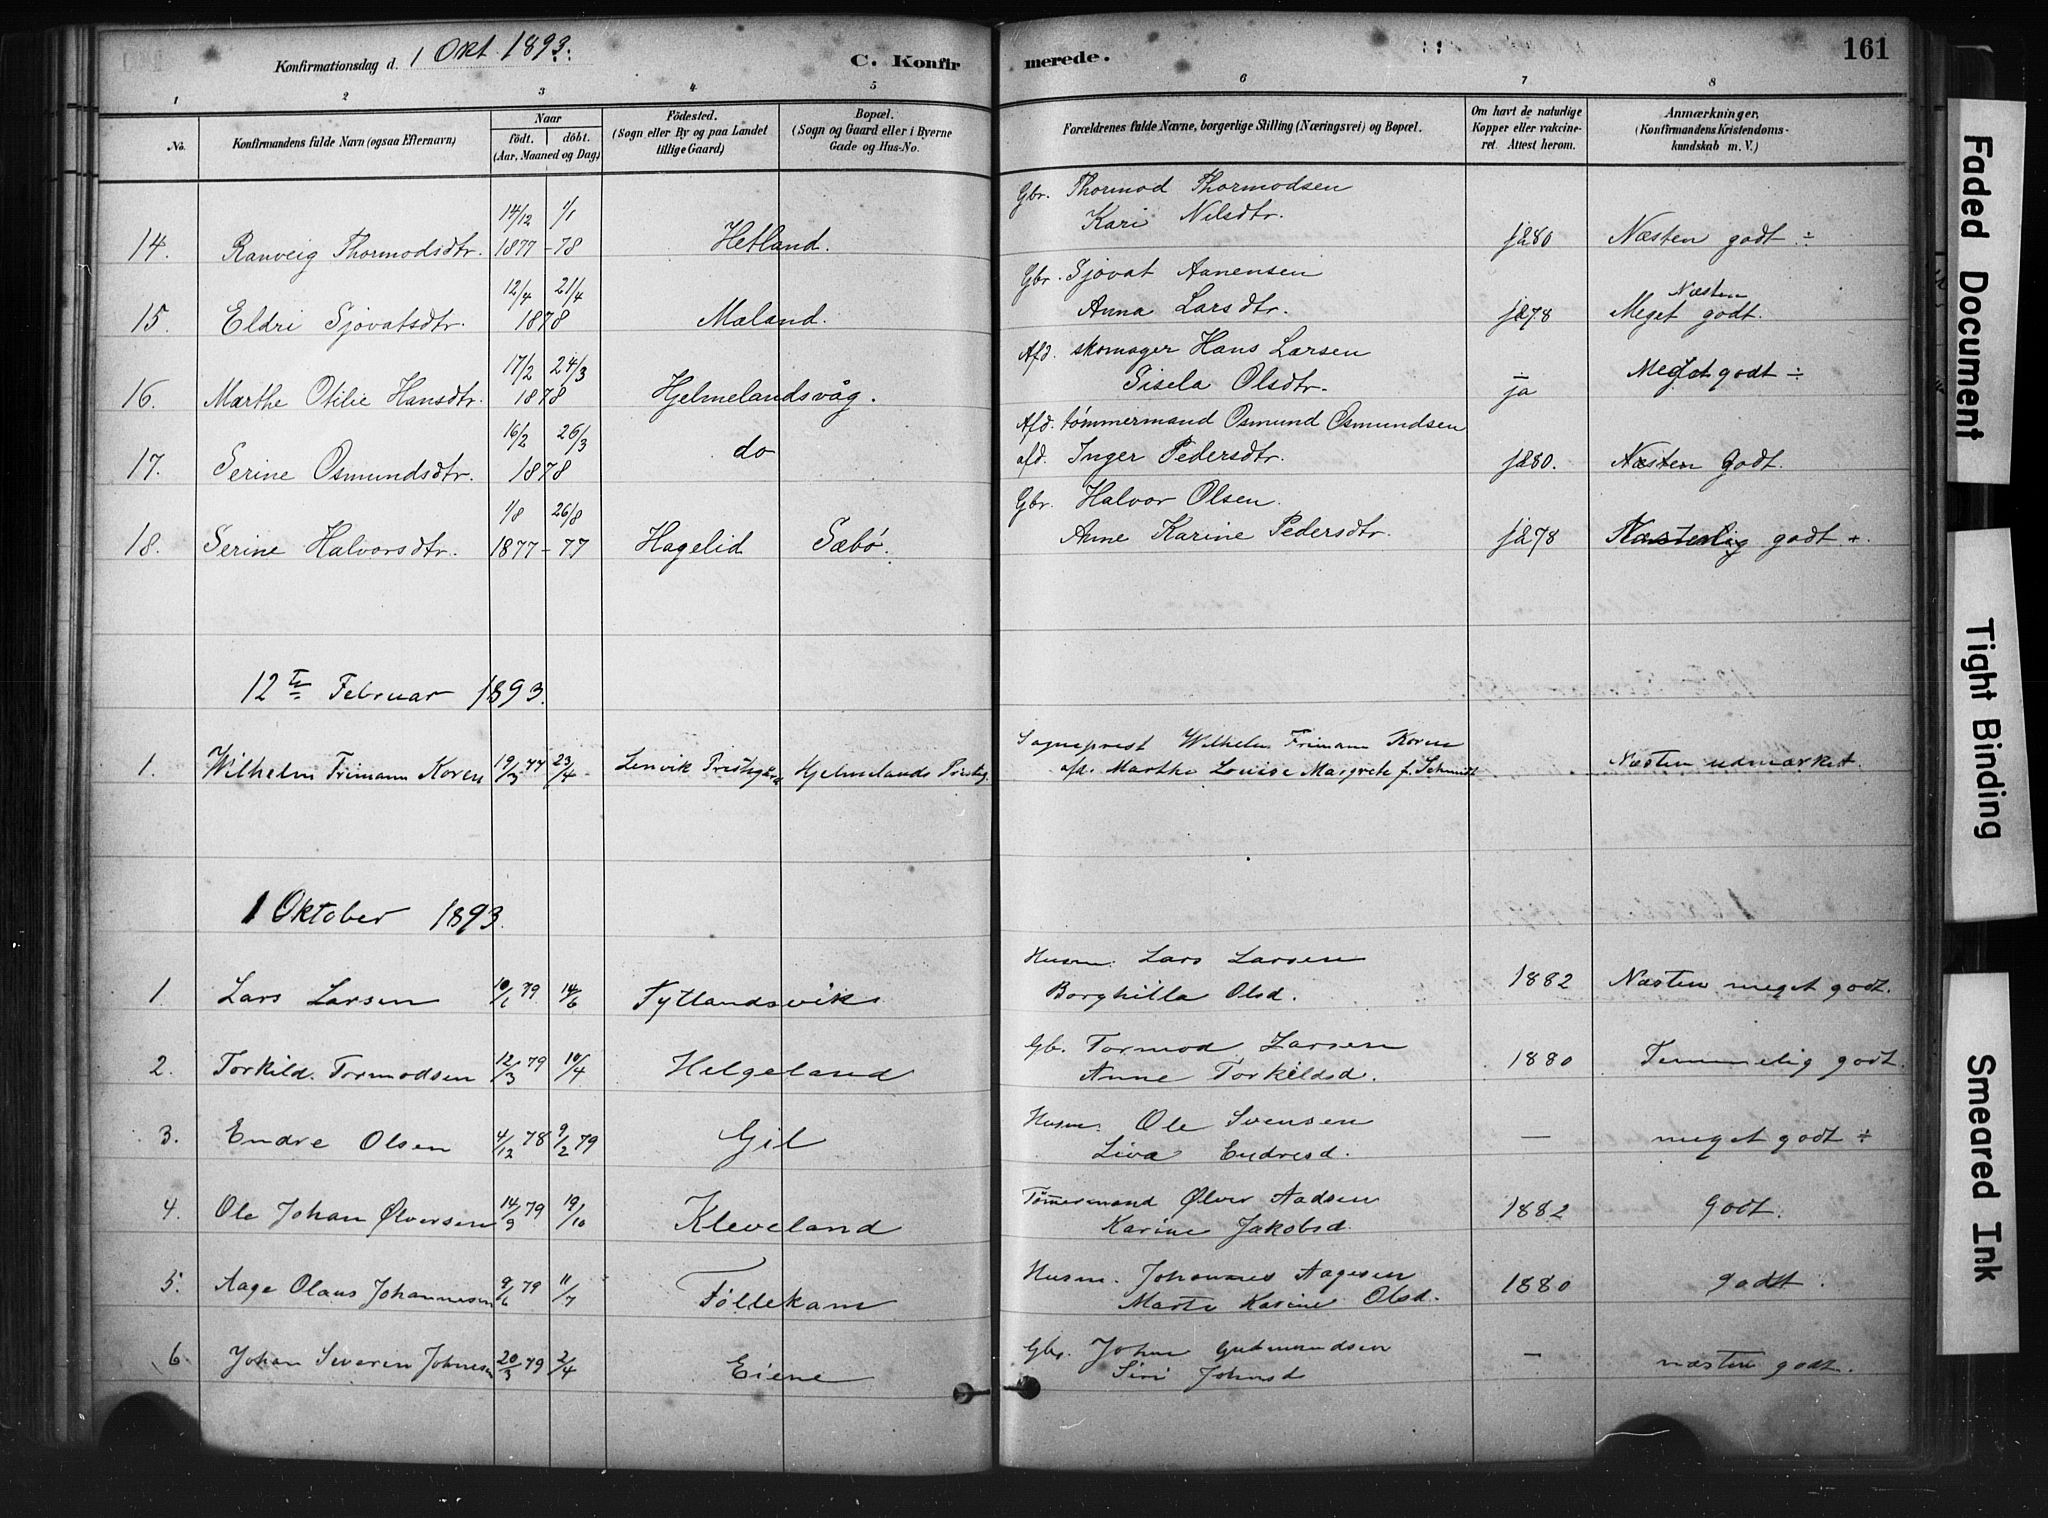 Konfirmationsdag d. 1 Okt. 1893. C. Konfir merede. 161
1 2 3 4 5 6 7 8
No. Konfirmandens fulde Navn (ogsaa Efternavn) Naar født. døbt. (Aar, Maaned og Dag) Fødested. (Sogn eller By og paa Landet tillige Gaard) Bopæl. (Sogn og Gaard eller i Byerne Gade og Hus-No. Forældrenes fulde Navne, borgerlige Stilling (Næringsvei) og Bopæl. Om havt de naturlige Kopper eller vakcineret. Attest herom. Anmærkninger. (Konfirmandens Kristendomskundskab m. V.)
14. Ranveig Thormodsdtr. 14/12 1877 1/1 -78 Hetland. Gbr. Thormod Thormodsen
Kari Nilsdtr. ja 80 Næsten godt ÷
15. Eldri Sjovatsdtr. 12/4 21/4 1878 Mæland. Gbr. Sjovat Aanensen
Anna Larsdtr. ja 78 Næsten Meget godt.
16. Marthe Otilie Hansdtr. 17/2 24/3 1878 Hjelmelandsvåg. Afd. skomager Hans Larsen
Sisela Olsdtr. ja Meget godt ÷
17. Serine Osmundsdtr. 16/2 26/3 1878 do Afd. tømmermand Osmund Osmundsen
afd. Inger Pedersdtr. ja 80. Næsten Godt.
18. Serine Halvorsdtr. 1/8 1877 26/8 -77 Hagelid Sæbø. Gbr. Halvor Olsen.
Anne Karine Pedersdtr. ja 78 godt +.
12te Februar 1893.
1. Wilhelm Frimann Koren 19/3 77 23/4 Lenvik Prestegård Hjelmelands Prstg. Sogneprest Wilhelm Frimann Koren
afd. Marthe Louise Margrete f. Schmidt Næsten udmærket.
1 Oktober 1893.
1. Lars Larsen 10/1 79. 14/6 Tytlandsvik Husm. Lars Larsen
Borghilla Olsd. 1882 Næsten meget godt.
2. Torkild. Tormodsen 12/3 79 10/4 Helgeland Gb. Tormod Larsen
Anne Torkildsd. 1880 Temmelig godt.
3. Endre Olsen 4/12 78 9/2 79 Gil Husm. Ole Svensen
Liva Endresd. — meget godt ÷
4. Ole Johan Ølversen 14/9 79 19/10 Kleveland Tømmermand Ølver Aadsen
Karine Jakobsd. 1882 Godt.
5. Aage Olaus Johannesen 9/6 79 11/7 Føllekam Husm. Johannes Aagesen
Marte Karine Olsd. 1880 godt.
6. Johan Severin Johnsen 20/3 79 2/4 Eiene Gbr. John Gudmundsen
Siri Johnsd — næsten godt.
Faded Document
Tight Binding
Smeared Ink